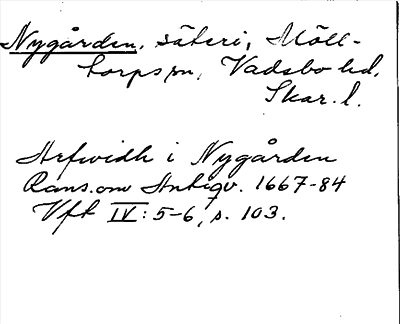 Nygården, säteri, Möll-
torps sn, Vadsbo hd,
Skar. l.
Arfwidh i Nygården
Rans. om Antiqv. 1667-84
Vft IV: 5-6, s. 103.